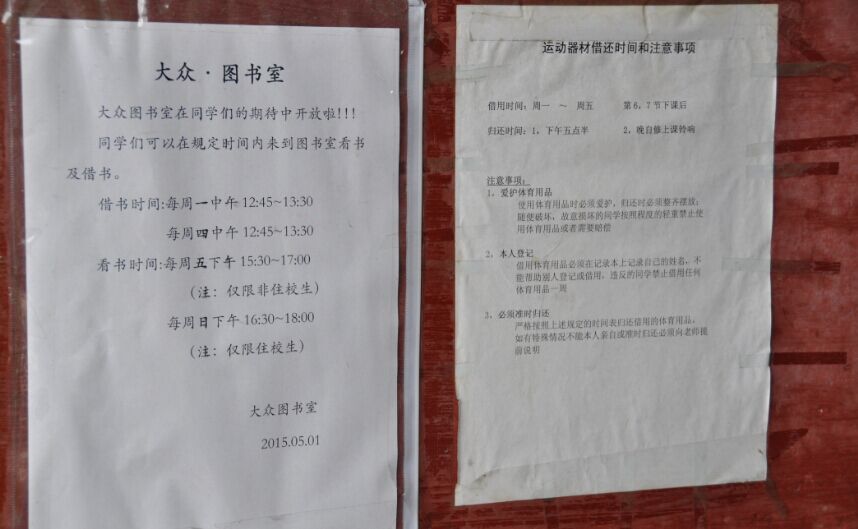 大众·图书室
大众图书室在同学们的期待中开放啦!!!
同学们可以在规定时间内来到图书室看书
及借书。
借书时间:每周一中午 12:45~13:30
每周四中午 12:45~13:30
看书时间:每周五下午 15:30~17:00
(注：仅限非住校生)
每周日下午 16:30~18:00
(注：仅限住校生)
大众图书室
2015.05.01
运动器材借还时间和注意事项
借用时间：周一 ～ 周五 第6，7节下课后
归还时间：1，下午五点半 2，晚自修上课铃响
注意事项：
1，爱护体育用品
使用体育用品时必须爱护，归还时必须整齐摆放；
随便破坏，故意损坏的同学按照程度的轻重禁止使
用体育用品或者需要赔偿
2，本人登记
借用体育用品必须在记录本上记录自己的姓名，不
能帮助别人登记或借用，违反的同学禁止借用任何
体育用品一周
3，必须准时归还
严格按照上述规定的时间表归还借用的体育用品，
如有特殊情况不能本人亲自或准时归还必须向老师提
前说明